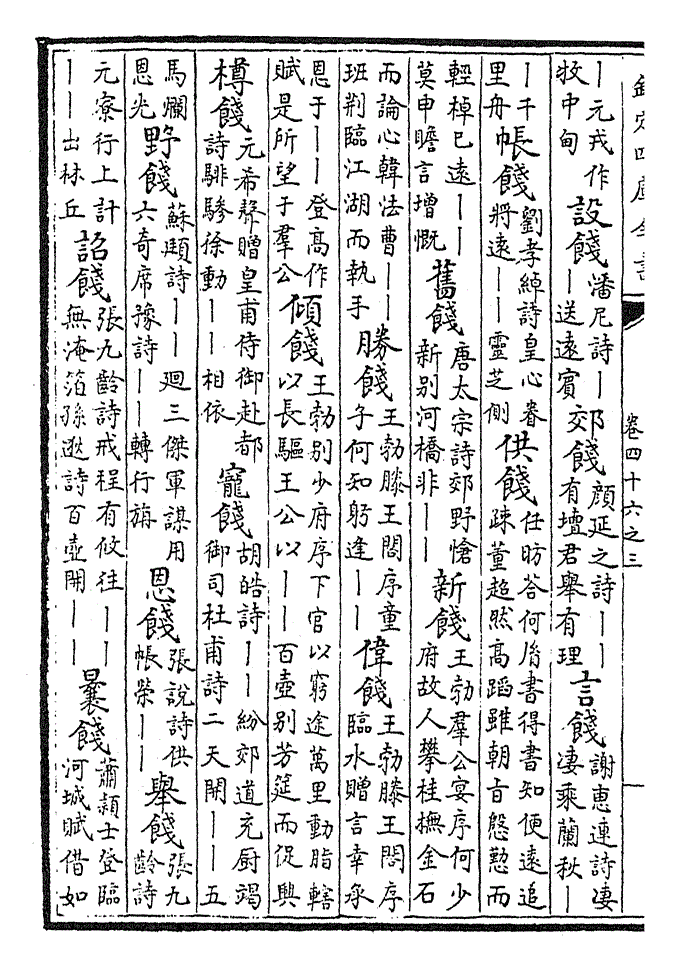 欽定四庫全書
卷四十六之三
丨元戎作牧中甸 設餞 潘尼詩丨丨送遠賓 郊餞 顔延之詩丨丨有壇君舉有理 言餞 謝惠連詩凄凄乘蘭秋丨
丨千里舟 帳餞 劉孝綽詩皇心眷將遠丨丨靈芝側 供餞 任昉答何胤書得書知便遠追疎董超然高蹈雖朝旨慇懃而
輕棹已遠丨丨莫申瞻言增慨 舊餞 唐太宗詩郊野愴新别河橋非丨丨 新餞 王勃羣公宴序何少府故人攀桂撫金石
而論心韓法曹丨丨班荆臨江湖而執手 勝餞 王勃滕王閣序童子何知躬逢丨丨 偉餞 王勃滕王閣序臨水贈言幸承
恩于丨丨登高作賦是所望于羣公 傾餞 王勃别少府序下官以窮途萬里動脂轄以長驅王公以丨丨百壺别芳筵而促興
樽餞 元希聲贈皇甫侍御赴都詩騑驂徐動丨丨相依 寵餞 胡皓詩丨丨紛郊道充厨竭御司杜甫詩二天開丨丨五
馬爛恩光 野餞 蘇頲詩丨丨廻三傑軍謀用六奇席豫詩丨丨轉行旃 恩餞 張說詩供帳榮丨丨 舉餞 張九齡詩
元寮行上計丨丨出林丘 詔餞 張九齡詩戒程有攸往丨丨無淹箔孫逖詩百壺開丨丨 曩餞 蕭頴士登臨河城賦借如